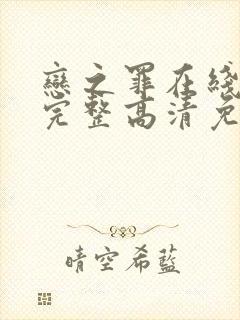 戀之罪在綫
完整高清免
晴空希藍